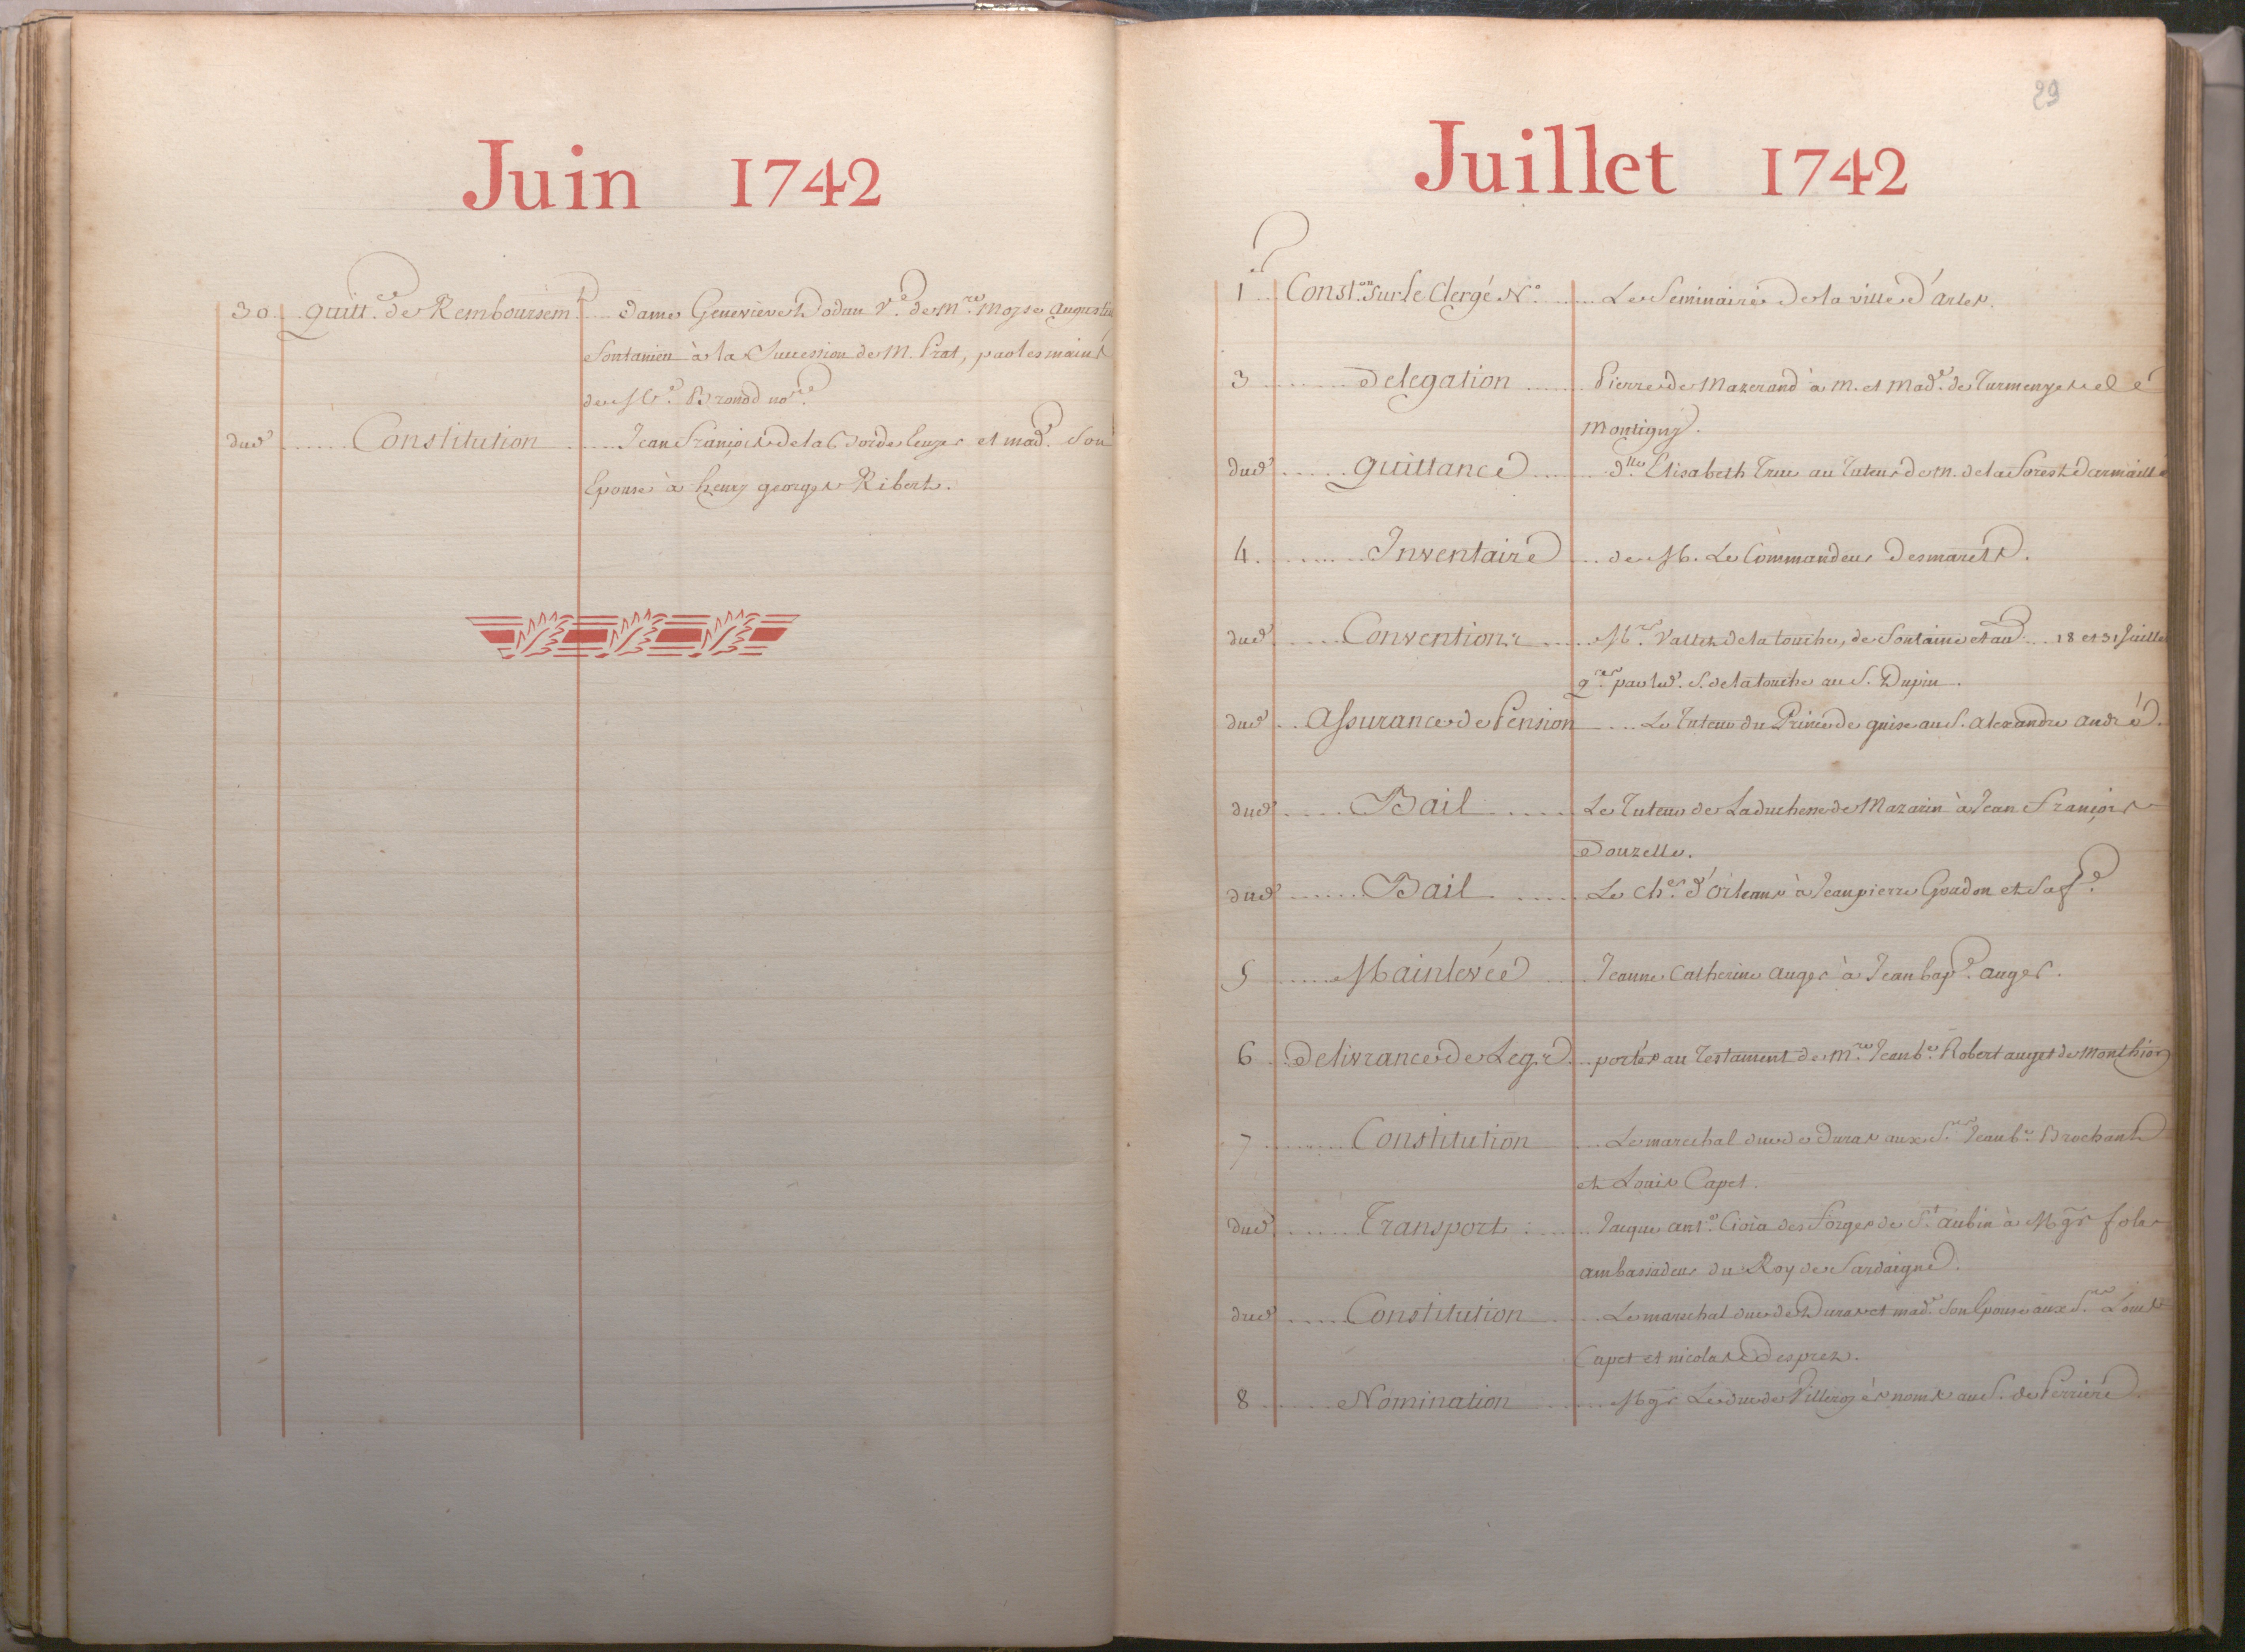 Juin 1742
30 .. quitt.ce de Remboursem.t .... Dame Genevieve Dodun V.e de M.re Moyse augustin
fontanieu à la Succession de M. Prat, par les mains
de M.e Bronod no.re
dud. ...... Constitution ...... Jean François de la Borde et mad.e Son
Epouse à henry georges Ribert.
29
Juillet 1742
1 .. Const.on Sur le Clergé N.o ...... Le Seminaire de la ville d'arles.
3 ........ Delegation ...... Pierre de Mazerand à M. et Mad.e de Turmenyes
Montigny.
dud. ..... quittance ...... d.lle Elisabeth True au Tuteur de M. de la forest Darmaillé
4 ........ Inventaire .... de M. Le Commandeur Desmarets.
dud. ..... Convention ..... M.rs Vallet de la touche, de fontaine et au.... 18 et 31 Juillet
q.ces par led. S. de la touche au S. Dupin.
dud. .. assurance de Pension .... Le Tuteur du Prince de guise au S. alexandre andré.
dud. ..... Bail ..... Le Tuteur de La duchesse de Mazarin à Jean François
Douzelle.
dud. ...... Bail ..... Le ch.er d'Orleans à Jean pierre Goudon et Sa f.e
5 ..... Mainlevée .... Jeanne Catherine auger à Jean bap.e auger.
6 .. Delivrance de Legs .. portés au Testament de M.re Jean b.e Robert auget de Monthion
7 ........ Constitution .... Le marechal duc de Duras aux S.rs Jean b.e Brochant
et Louis Capet.
dud. ...... Transport ...... Jacque ant.e Cioia des forges de S.t aubin à Mgr Solar
ambassadeur du Roy de Sardaigne.
dud. ..... Constitution ..... Le marechal duc de Duras et mad.e Son Epouse aux S.rs Louis
Capet et nicolas Desprez.
8 ...... Nomination ...... Mgr Le duc de Villeroy ès noms au S. de Perriere.